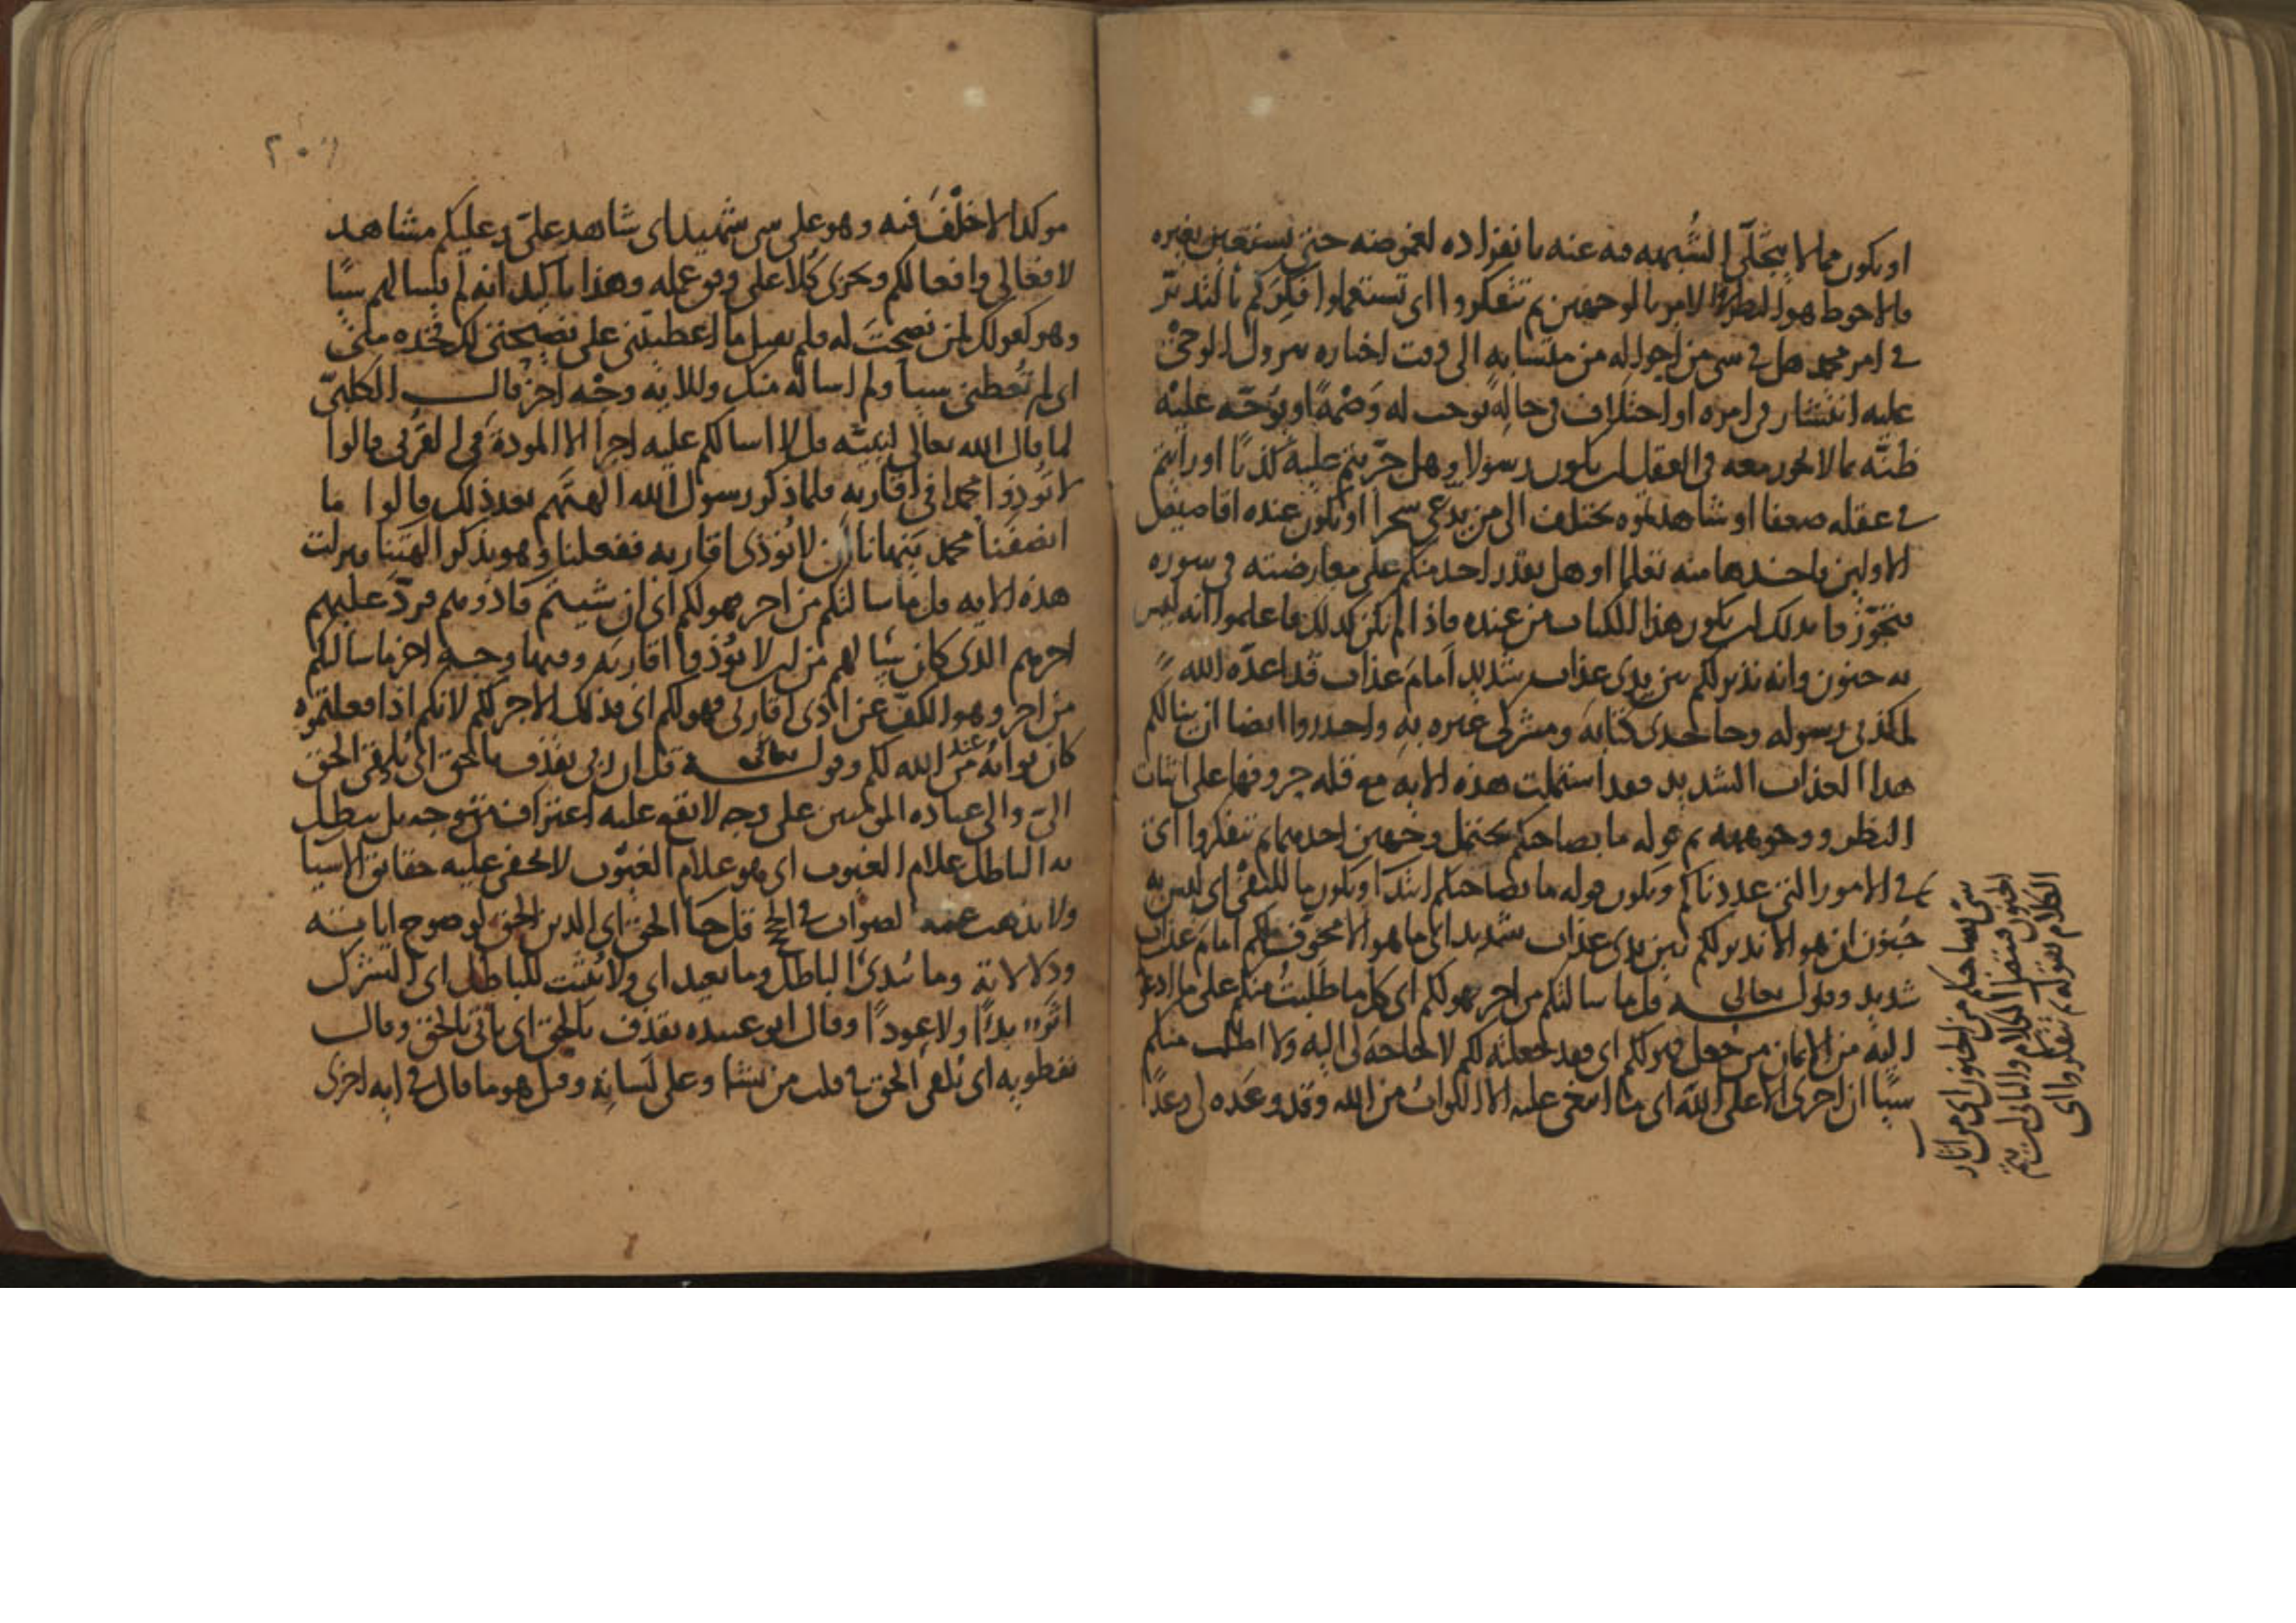 او يكون مما لا يتجلى الشبهه فيه عنه بانفراده لغموضه حتى يستعين بغيره
فالاحوط هو النظر في الامر بالوجهين ثم تتفكروا اى تستعملوا فكركم بالتدبر
في امر محمد هل في سى من احواله من منشايه الى وقت اخباره بنزول الوحى
عليه انتشار في امره او اختلاف في حاله توجب له وصمة او توجه عليه
ظنه بما لا يجوز معه في العقل ان يكون رسولا وهل جربتم عليه كذبا او رايتم
في عقله ضعفا او شاهدتموه يختلف الى من يدعى سحرا او يكون عنده اقاصيص
الاولين ياخذها منه تعلما او هل يقدر احد منكم على معارضته في سوره
فتجوزوا بذلك ان يكون هذا الكتاب من عنده فاذا لم يكن كذلك فاعلموا انه ليس
به جنون وانه نذير لكم بين يدى عذاب شديد امام عذاب قد اعده الله
لمكذبى رسوله وجاحدى كتابه ومشركى غيره به واحذروا ايضا ان ينالكم
هذا العذاب الشديد فقد اشتملت هذه الايه مع قله حروفها على اثبات
النظر ووجوهه ثم قوله ما بصاحبكم يحتمل وجهين احدهما ثم تتفكروا اى
في الامور التى عددناكم ويكون قوله ما بصاحبكم ابتدآ ويكون ما للنفى اى ليس به
جنون ان هو الا نذير لكم بين يدى عذاب شديد اى ما هو الا مخوف لكم امام عذاب
شديد وقوله تعالى قل ما سالتكم من اجر فهو لكم اى كل ما طلبت منكم على ما ادعو
اليه من الايمان من جعل فهو لكم اى فقد جعلته لكم لا حاجة لى اليه ولا اطلب منكم
سيا ان اجرى الا على الله اى ما ابتغى عليه الا الثواب من الله وقد وعده لى وعدا
سى بصاحبكم من الجنون اى من اثار
الجنون فيتم الكلام والثانى ان يتم
الكلام بقوله ثم تتفكروا اى
موكدا لا خلف فيه وهو على سى شهيد اى شاهد على وعليكم مشاهد
لافعالى وافعالكم ويجزى كلا على وفق عمله وهذا تاكيد انه لم يسالهم سيا
وهو كقولك لمن نصحت له فلم يقبل ما اعطيتنى على نصيحتى لك فخذه منى
اى لم تعطنى سيا ولم اساله منك وللايه وجه اخر قال الكلبى
لما قال الله تعالى لنبيه قل لا اسالكم عليه اجرا الا المودة في القربى قالوا
لا تؤذوا محمدا في اقاربه فلما ذكر رسول الله الهتهم بعد ذلك قالوا ما
انصفنا محمد ينهانا ان لا نؤذى اقاربه ففعلنا وهو يذكر الهتنا ونزلت
هذه الايه قل ما سالتكم من اجر فهو لكم اى ان شيتم فاذوهم فرد عليهم
اجرهم الذى كان سيا لهم من ان لا يؤذوا اقاربه وفيها وجه اخر ما سالتكم
من اجر وهو الكف عن اذى اقاربى فهو لكم اى فذلك الاجر لكم لانكم اذا فعلتموه
كان ثوابه من عند الله لكم وقوله تعالى قل ان ربى يقذف بالحق اى يلقى الحق
الى والى عباده المومنين على وجه لا يقع عليه اعتراف من موجه بل يبطل
به الباطل علام الغيوب اى هو علام الغيوب لا يخفى عليه حقايق الاسيا
ولا يذهب عنه الصواب في الحج قل جا الحق اى الدين الحق لوضوح اياته
ودلالاته وما يبدئ الباطل وما يعيد اى ولا يثبت للباطل اى الشرك
اثر بدئا ولا عودا وقال ابو عبيده يقذف بالحق اى ياتى بالحق وقال
نفطويه اى يلقى الحق في قلب من يشا وعلى لسانه وقيل هو ما قال في ايه اخرى